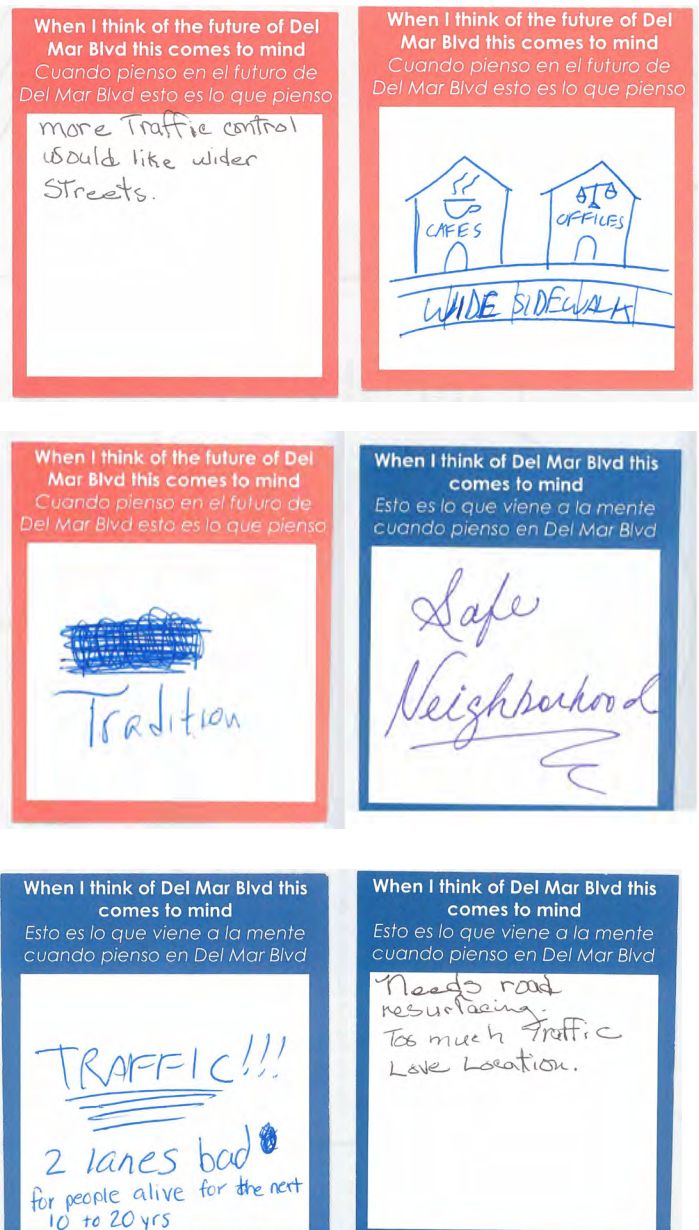 When I think of the future of Del
Mar Blvd this comes to mind
Cuando pienso en el futuro de
Del Mar Blvd esto es lo que pienso
more Traffic control
would like wider
Streets.
When I think of the future of Del
Mar Blvd this comes to mind
Cuando pienso en el futuro de
Del Mar Blvd esto es lo que pienso
CAFES
OFFICES
WIDE SIDEWALK
When I think of the future of Del
Mar Blvd this comes to mind
Cuando pienso en el futuro de
Del Mar Blvd esto es lo que pienso
Tradition
When I think of Del Mar Blvd this
comes to mind
Esto es lo que viene a la mente
cuando pienso en Del Mar Blvd
Safe
Neighborhood
When I think of Del Mar Blvd this
comes to mind
Esto es lo que viene a la mente
cuando pienso en Del Mar Blvd
TRAFFIC!!!
2 lanes bad
for people alive for the next
10 to 20 yrs
When I think of Del Mar Blvd this
comes to mind
Esto es lo que viene a la mente
cuando pienso en Del Mar Blvd
Needs road
resurfacing.
Too much Traffic
Love Location.